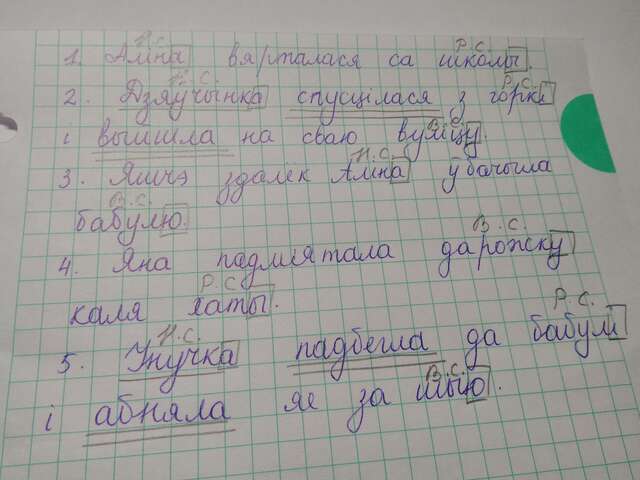 Н.С. Р.С.
1. Аліна вярталася са школы.
Н.С. Р.С.
2. Дзяўчынка спусцілася з горкі
В.С.
і выйшла на сваю вуліцу.
Н.С.
3. Яшчэ здалёк Аліна ўбачыла
В.С.
бабулю.
В.С.
4. Яна падмятала дарожку
Р.С.
каля хаты.
Н.С. Р.С.
5. Унучка падбегла да бабулі
В.С.
і абняла яе за шыю.